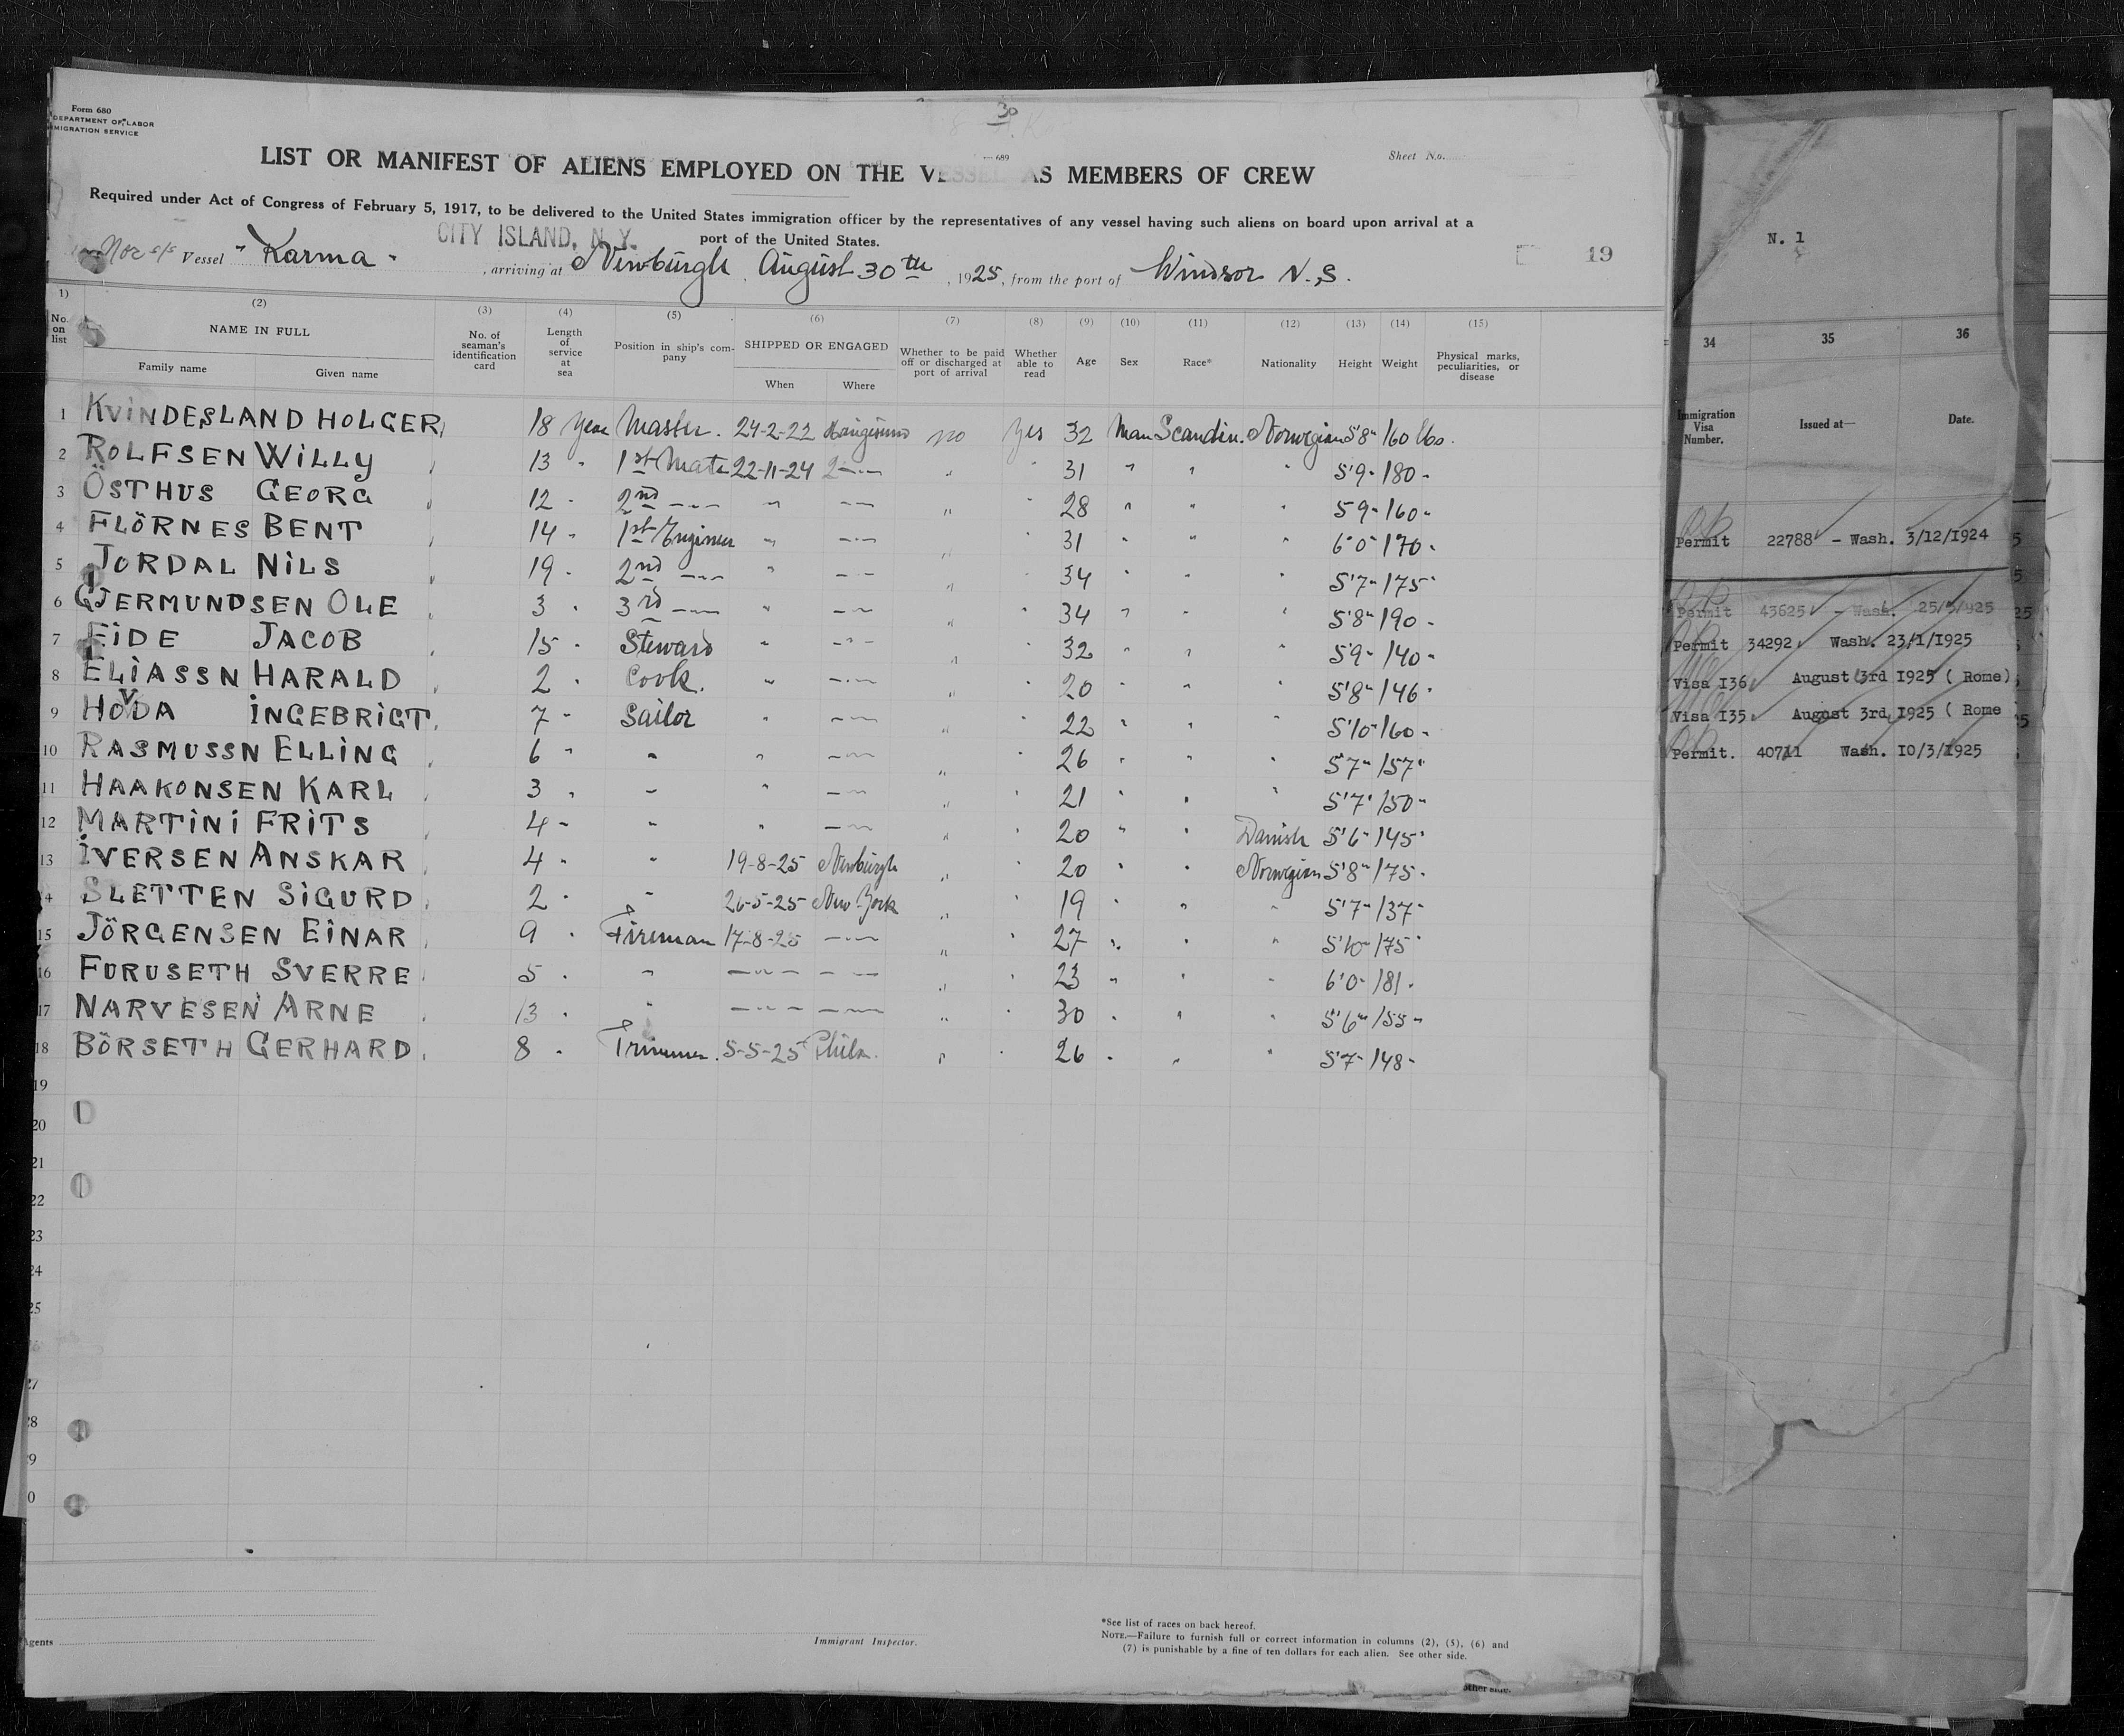 30
Form 680
DEPARTMENT OF LABOR
MIGRATION SERVICE
689
Sheet No.
LIST OR MANIFEST OF ALIENS EMPLOYED ON THE VESSEL AS MEMBERS OF CREW
Required under Act of Congress of February 5, 1917, to be delivered to the United States immigration officer by the representatives of any vessel having such aliens on board upon arrival at a
port of the United States.
CITY ISLAND, N. Y.
Nor s/s Vessel "Karma" , arriving at Newburgh, August 30th, 1925, from the port of Windsor N.S.
19
1) (2) (3) (4) (5) (6) (7) (8) (9) (10) (11) (12) (13) (14) (15)
No. on list NAME IN FULL Family name Given name No. of seaman's identification card Length of service at sea Position in ship's company SHIPPED OR ENGAGED When Where Whether to be paid off or discharged at port of arrival Whether able to read Age Sex Race* Nationality Height Weight Physical marks, peculiarities, or disease
1 KVINDESLAND HOLGER 18 year Master. 24-2-22 no yes 32 Man Scandin. Norwegian 5'8" 160 lbs.
2 ROLFSEN WILLY 13 " 1st Mate 22-11-24 " " " 31 " " " 5'9" 180 "
3 ÖSTHUS GEORG 12 " 2nd —"— " —"— " " 28 " " " 5'9" 160 "
4 FLÖRNES BENT 14 " 1st Engineer " —"— " " 31 " " " 6'0" 170 "
5 JORDAL NILS 19 " 2nd —"— " —"— " " 34 " " " 5'7" 175 "
6 GJERMUNDSEN OLE 3 " 3rd —"— " —"— " " 34 " " " 5'8" 190 "
7 EIDE JACOB 15 " Steward " —"— " " 32 " " " 5'9" 140 "
8 ELIASSN HARALD 2 " Cook. " —"— " " 20 " " " 5'8" 146 "
9 HOVDA INGEBRIGT 7 " Sailor " —"— " " 22 " " " 5'10" 160 "
10 RASMUSSN ELLING 6 " " " —"— " " 26 " " " 5'7" 157 "
11 HAAKONSEN KARL 3 " " " —"— " " 21 " " " 5'7" 150 "
12 MARTINI FRITS 4 " " " —"— " " 20 " " Danish 5'6" 145 "
13 IVERSEN ANSKAR 4 " " 19-8-25 Newburgh " " 20 " " Norwegian 5'8" 175 "
14 SLETTEN SIGURD 2 " " 26-5-25 New York " " 19 " " " 5'7" 137 "
15 JÖRGENSEN EINAR 9 " Fireman 17-8-25 —"— " " 27 " " " 5'10" 175 "
16 FURUSETH SVERRE 5 " " —"— —"— " " 23 " " " 6'0" 181 "
17 NARVESEN ARNE 13 " " —"— —"— " " 30 " " " 5'6" 155 "
18 BÖRSETH GERHARD 8 " Trimmer. 5-5-25 Phila. " " 26 " " " 5'7" 148 "
19
20
21
22
23
24
25
27
28
29
30
Agents
Immigrant Inspector.
*See list of races on back hereof.
NOTE.—Failure to furnish full or correct information in columns (2), (5), (6) and
(7) is punishable by a fine of ten dollars for each alien. See other side.
other side.
N. 1
34 35 36
Immigration Visa Number. Issued at— Date.
Permit 22788 - Wash. 3/12/1924
Permit 43625 - Wash. 25/3/925
Permit 34292 Wash. 23/1/1925
Visa I36 August 3rd 1925 ( Rome)
Visa I35 August 3rd, 1925 ( Rome
Permit. 40711 Wash. 10/3/1925